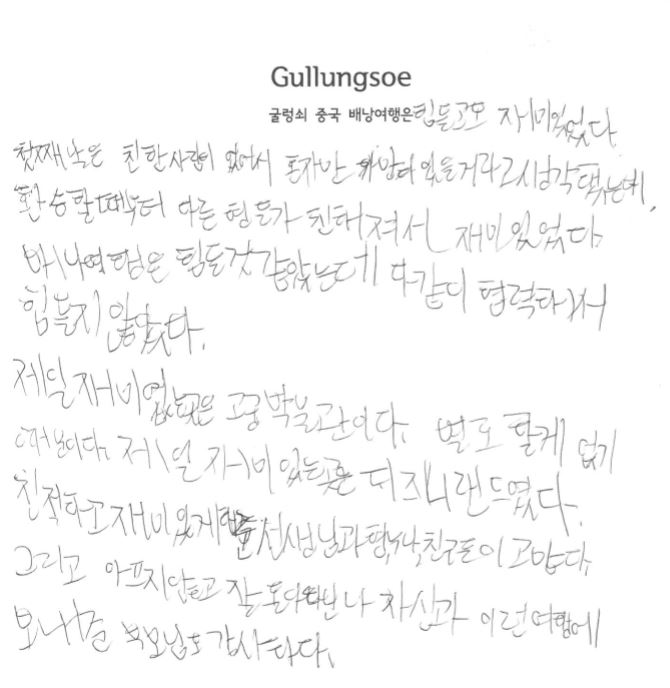 Gullungsoe
굴렁쇠 중국 배낭여행은 힘들고도 재미있었다
첫째날은 친한사람이 없어서 혼자만 있을거라고 생각했는데,
환승할때부터 다른 형들과 친해져서 재미있었다.
배낭여행은 힘든것 같았는데 다같이 협력해서
힘들지 않았다.
제일 재미없는곳은 고궁박물관이다. 별로 할게 없기
때문이다. 제일 재미있는곳은 디즈니랜드였다.
친적하고 재미있게해준 선생님과 형,누나,친구들이 고맙다.
그리고 아프지않고 잘 돌아다닌 나 자신과 이런여행에
보내준 부모님도 감사하다.